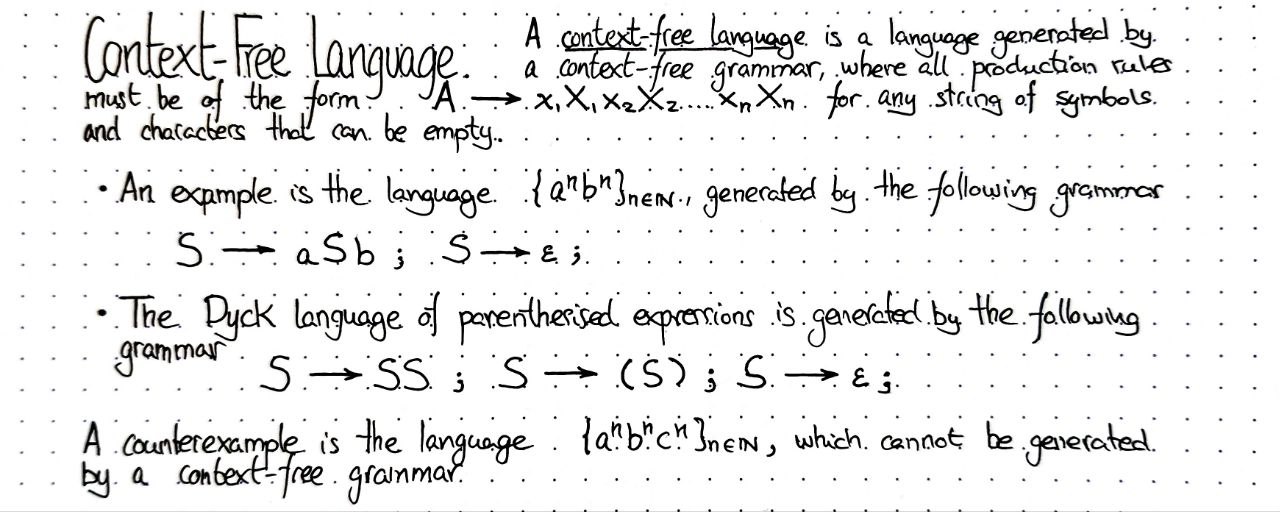 Context-Free Language. A context-free language is a language generated by
a context-free grammar, where all production rules
must be of the form A → x₁X₁x₂X₂....xₙXₙ for any string of symbols
and characters that can be empty.
• An example is the language {aⁿbⁿ}n∈ℕ, generated by the following grammar
S → aSb ; S → ε ;
• The Dyck language of parenthesised expressions is generated by the following
grammar
S → SS ; S → (S) ; S → ε ;
A counterexample is the language {aⁿbⁿcⁿ}n∈ℕ, which cannot be generated
by a context-free grammar.